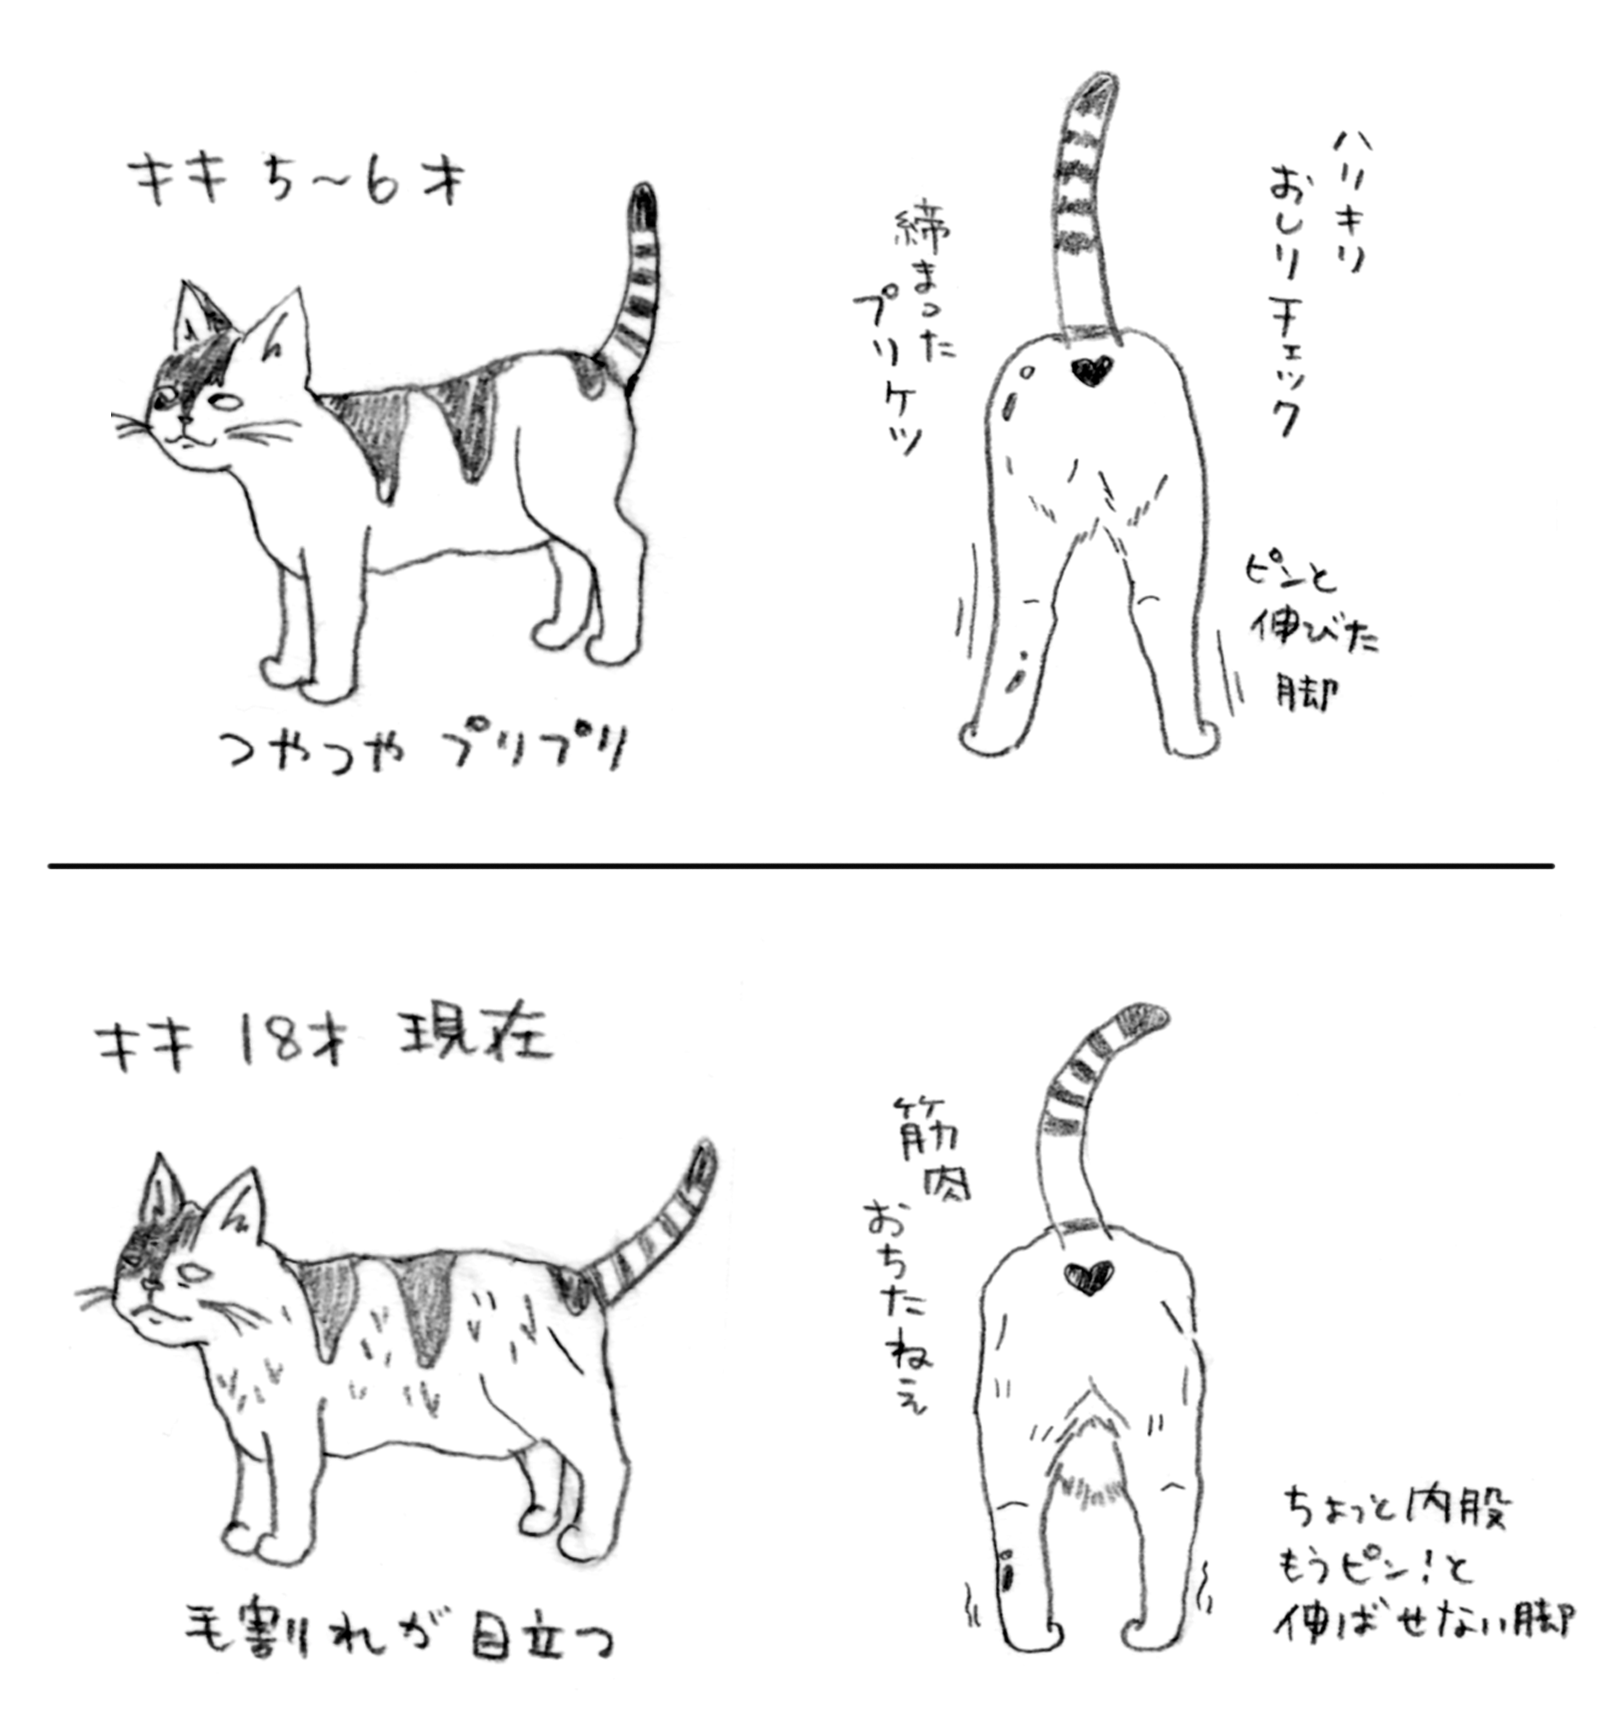 キキ 5〜6才
つやつや プリプリ
ハリキリ
おしりチェック
締まった
プリケツ
ピンと
伸びた
脚
キキ 18才 現在
毛割れが目立つ
筋肉
おちたねえ
ちょっと内股
もうピン!と
伸ばせない脚